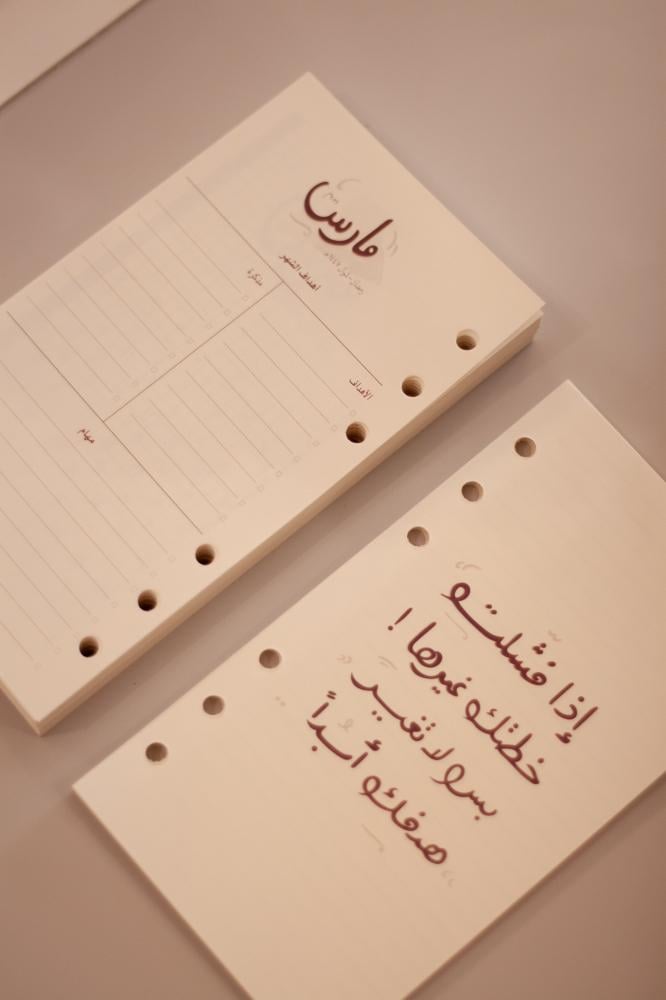 مارس
أهداف الشهر
مذكرة
الأهداف
مهام
إذا فشلت
خطتك غيرها !
بس لا تغير
هدفك أبداً